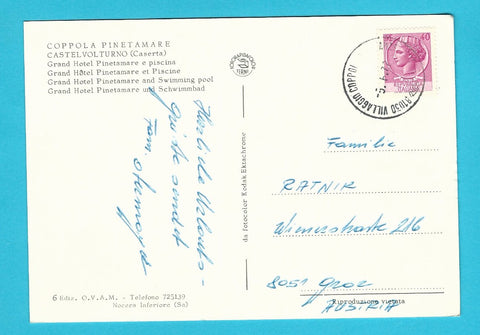 COPPOLA PINETAMARE
CASTELVOLTURNO (Caserta)
Grand Hotel Pinetamare e piscina
Grand Hôtel Pinetamare et Piscine
Grand Hotel Pinetamare and Swimming pool
Grand Hotel Pinetamare und Schwimmbad
Herzliche Urlaubs-
grüße sendet
Fam.
6 Ediz. O.V.A.M. - Telefono 725139
Nocera Inferiore (Sa)
da fotocolor Kodak Ektachrome
40
81030 VILLAGGIO COPPOL
Familie
RATNIK
Wienerstraße 216
8051 Graz
AUSTRIA
Riproduzione vietata